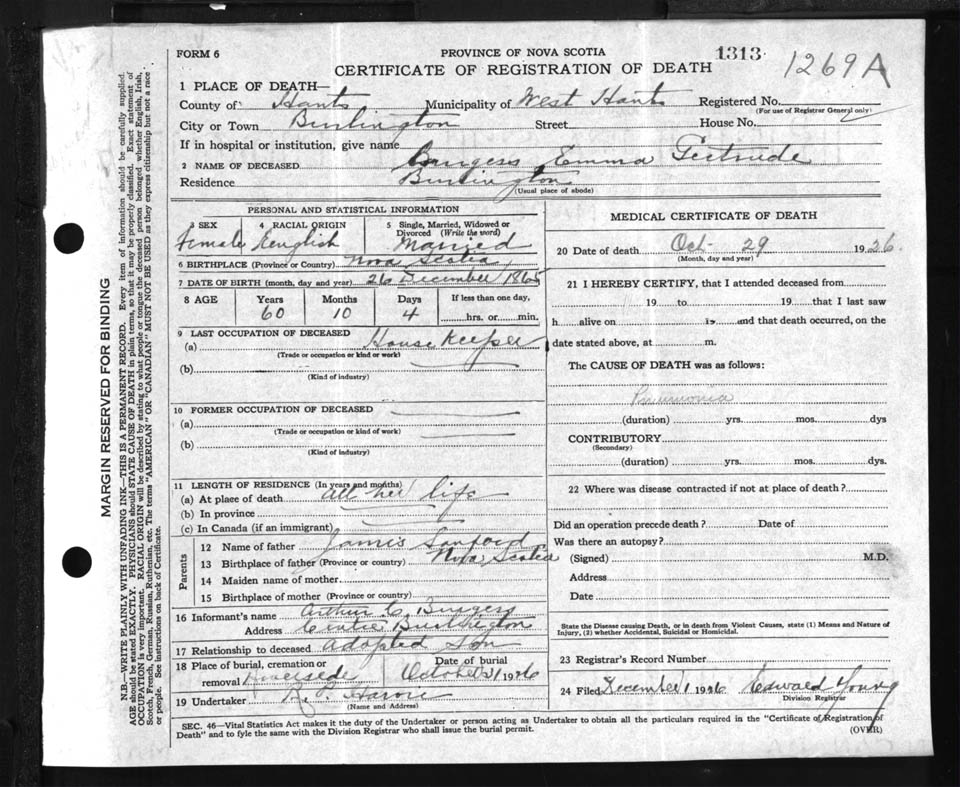 FORM 6
PROVINCE OF NOVA SCOTIA
1313
1269A
CERTIFICATE OF REGISTRATION OF DEATH
1 PLACE OF DEATH—
County of Hants Municipality of West Hants Registered No.
(For use of Registrar General only)
City or Town Burlington Street House No.
If in hospital or institution, give name
2 NAME OF DECEASED Burgess Emma Gertrude
Residence Burlington
(Usual place of abode)
PERSONAL AND STATISTICAL INFORMATION
3 SEX 4 RACIAL ORIGIN 5 Single, Married, Widowed or Divorced (Write the word)
Female English Married
6 BIRTHPLACE (Province or Country) Nova Scotia
7 DATE OF BIRTH (month, day and year) 26 December 1865
8 AGE Years Months Days If less than one day,
60 10 4 hrs. or min.
9 LAST OCCUPATION OF DECEASED
(a) House Keeper
(Trade or occupation or kind or work)
(b)
(Kind of industry)
10 FORMER OCCUPATION OF DECEASED
(a)
(Trade or occupation or kind of work)
(b)
(Kind of industry)
11 LENGTH OF RESIDENCE (In years and months)
(a) At place of death all her life
(b) In province
(c) In Canada (if an immigrant)
Parents
12 Name of father James Sanford
13 Birthplace of father (Province or country) Nova Scotia
14 Maiden name of mother
15 Birthplace of mother (Province or country)
16 Informant's name Arthur C. Burgess
Address Centre Burlington
17 Relationship to deceased adopted Son
18 Place of burial, cremation or removal Riverside Date of burial October 31 1926
19 Undertaker
(Name and Address)
MEDICAL CERTIFICATE OF DEATH
20 Date of death Oct- 29 1926.
(Month, day and year)
21 I HEREBY CERTIFY, that I attended deceased from
19 to 19 that I last saw
h alive on 19 and that death occurred, on the
date stated above, at m.
The CAUSE OF DEATH was as follows:
Pneumonia
(duration) yrs. mos. dys
CONTRIBUTORY
(Secondary)
(duration) yrs. mos. dys.
22 Where was disease contracted if not at place of death?
Did an operation precede death? Date of
Was there an autopsy?
(Signed) M.D.
Address
Date
State the Disease causing Death, or in death from Violent Causes, state (1) Means and Nature of
Injury, (2) whether Accidental, Suicidal or Homicidal.
23 Registrar's Record Number
24 Filed December 1 1926 Edward Young
Division Registrar
SEC. 46—Vital Statistics Act makes it the duty of the Undertaker or person acting as Undertaker to obtain all the particulars required in the "Certificate of Registration of
Death" and to fyle the same with the Division Registrar who shall issue the burial permit.
(OVER)
MARGIN RESERVED FOR BINDING
N.B.—WRITE PLAINLY WITH UNFADING INK—THIS IS A PERMANENT RECORD. Every item of information should be carefully supplied.
AGE should be stated EXACTLY. PHYSICIANS should STATE CAUSE OF DEATH in plain terms, so that it may be properly classified. Exact statement of
OCCUPATION is very important. RACIAL ORIGIN will be described by stating to what people or tongue the deceased person belonged whether English, Irish,
Scotch, French, German, Russian, Ruthenian, etc. The terms "AMERICAN" OR "CANADIAN" MUST NOT BE USED as they express citizenship but not a race
or people. See instructions on back of Certificate.